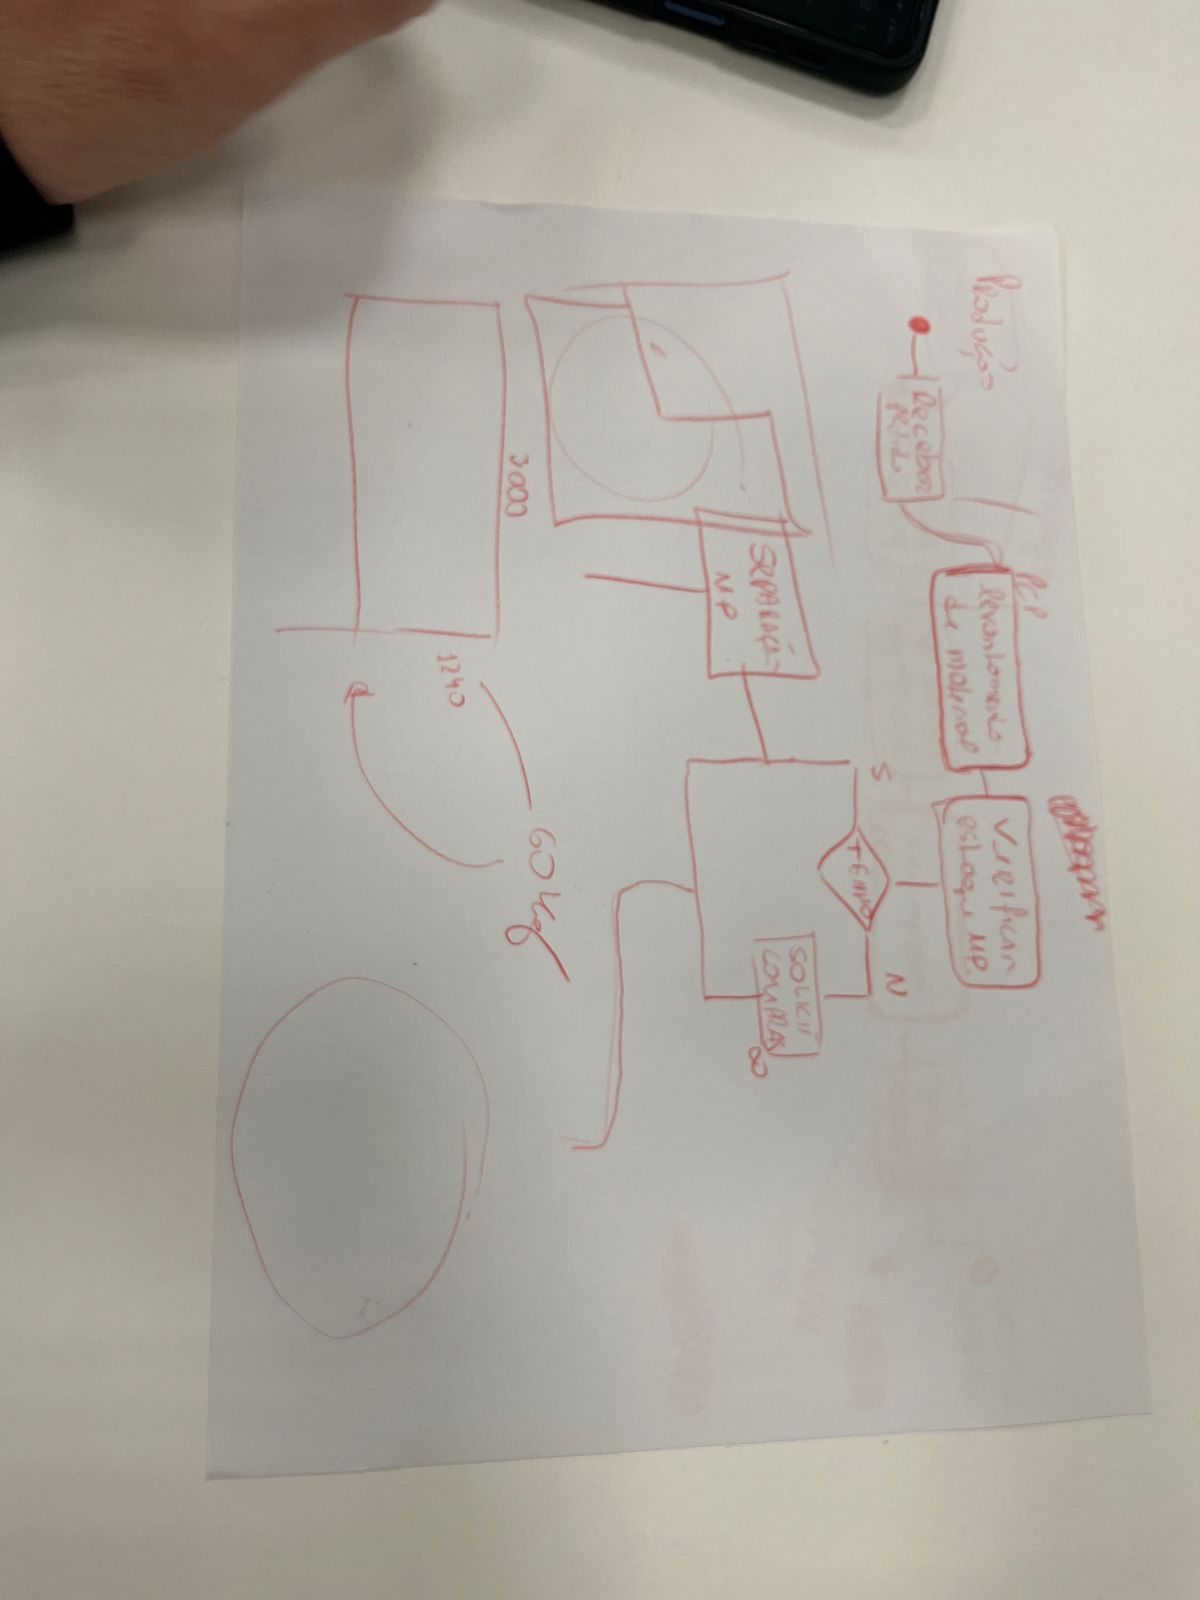 Produção
PCP
Receber
levantamento
de material
Verificar
estoque MP.
S
TEMPO
N
SOLICIT
COMPRAS
SEPARAÇÃO
MP
3000
1240
60 kg